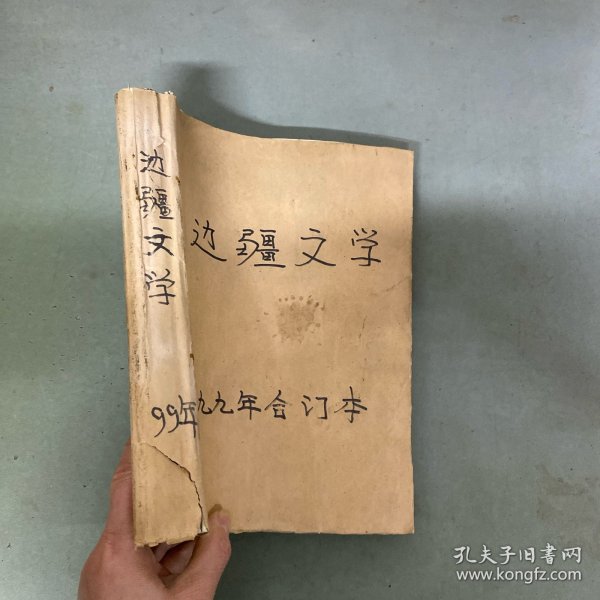 边疆文学
99年
边疆文学
九九年合订本
孔夫子旧书网
www.kongfz.com